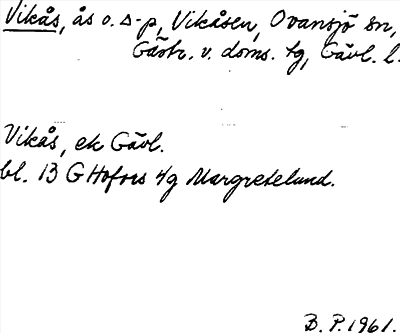 Vikås, ås o. s-p, Vikåsen, Ovansjö sn,
Gästr. v. doms. tg, Gävl. l.
Vikås, ek Gävl.
bl. 13 G Hofors 4g Margretelund.
B. P. 1961.